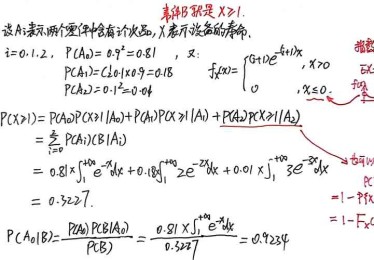 事件B就是 X≥1.
设Ai表示两个零件中含有i个次品, X表示设备的寿命.
i=0.1.2, P(A₀)=0.9²=0.81, 又:
P(A₁)=C₂¹0.1×0.9=0.18
P(A₂)=0.1²=0.04
fₓ(x)={(i+1)e^{-(i+1)x}, x>0
0, x≤0.
指数
EX=
P(X≥1)=P(A₀)P(X≥1|A₀)+P(A₁)P(X≥1|A₁)+P(A₂)P(X≥1|A₂)
=∑_{i=0}^{2} P(Ai)(B|Ai)
=0.81×∫₁^{+∞}e^{-x}dx+0.18∫₁^{+∞}2e^{-2x}dx+0.01×∫₁^{+∞}3e^{-3x}dx
=0.3227.
P(A₀|B)=P(A₀)P(B|A₀)/P(B)=0.81×∫₁^{+∞}e^{-x}dx/0.3227=0.9234
也可以
P(
=1-P{X
=1-Fₓ(